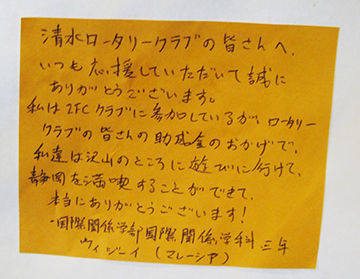 清水ロータリークラブの皆さんへ、
いつも応援していただいて誠に
ありがとうございます。
私はIFCクラブに参加しているが、ロータリー
クラブの皆さんの助成金のおかげで、
私達は沢山のところに遊びに行けて、
静岡を満喫することができて、
本当にありがとうございます！
-国際関係学部国際関係学科 三年
ウィジーイ (マレーシア)